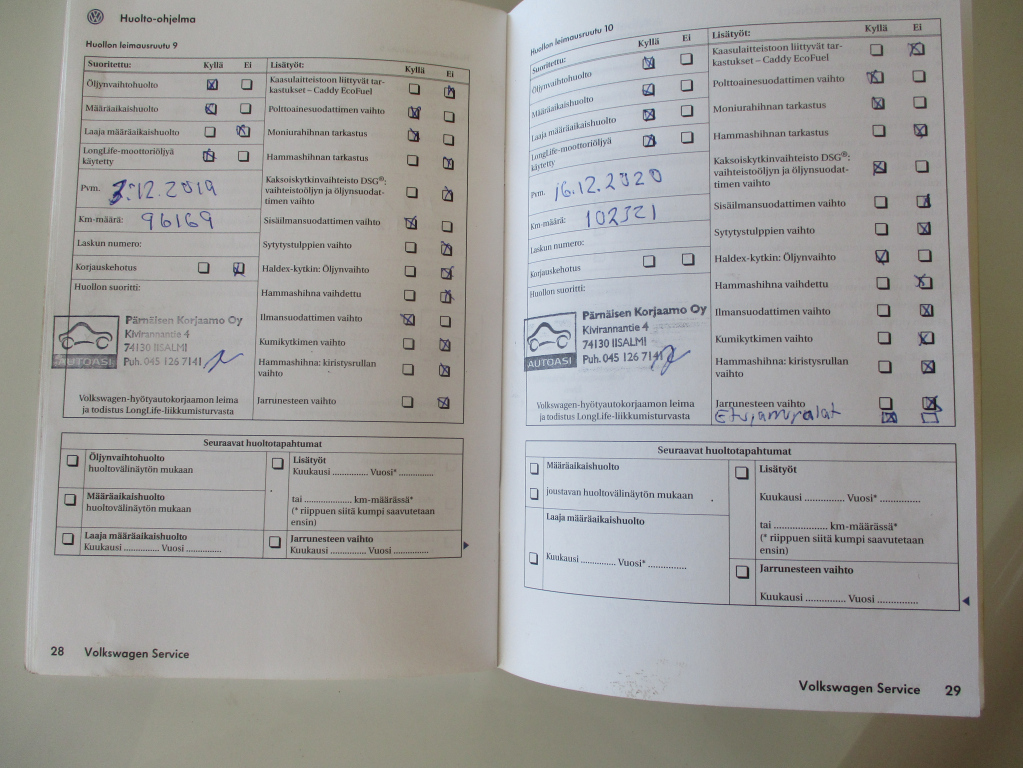 Huolto-ohjelma
Huollon leimausruutu 9
Suoritettu: Kyllä Ei
Öljynvaihtohuolto
Määräaikaishuolto
Laaja määräaikaishuolto
LongLife-moottoriöljyä
käytetty
Pvm. 3.12.2019
Km-määrä: 96169
Laskun numero:
Korjauskehotus
Huollon suoritti:
AUTOASI
Pärnäisen Korjaamo Oy
Kivirannantie 4
74130 IISALMI
Puh. 045 126 7141
Volkswagen-hyötyautokorjaamon leima
ja todistus LongLife-liikkumisturvasta
Lisätyöt: Kyllä Ei
Kaasulaitteistoon liittyvät tar-
kastukset – Caddy EcoFuel
Polttoainesuodattimen vaihto
Moniurahihnan tarkastus
Hammashihnan tarkastus
Kaksoiskytkinvaihteisto DSG®:
vaihteistoöljyn ja öljynsuodat-
timen vaihto
Sisäilmansuodattimen vaihto
Sytytystulppien vaihto
Haldex-kytkin: Öljynvaihto
Hammashihna vaihdettu
Ilmansuodattimen vaihto
Kumikytkimen vaihto
Hammashihna: kiristysrullan
vaihto
Jarrunesteen vaihto
Seuraavat huoltotapahtumat
Öljynvaihtohuolto
huoltovälinäytön mukaan
Määräaikaishuolto
huoltovälinäytön mukaan
Laaja määräaikaishuolto
Kuukausi .............. Vuosi ..............
Lisätyöt
Kuukausi .............. Vuosi* ..............
tai ................... km-määrässä*
(* riippuen siitä kumpi saavutetaan
ensin)
Jarrunesteen vaihto
Kuukausi .............. Vuosi ..............
28 Volkswagen Service
Huollon leimausruutu 10
Suoritettu: Kyllä Ei
Öljynvaihtohuolto
Määräaikaishuolto
Laaja määräaikaishuolto
LongLife-moottoriöljyä
käytetty
Pvm. 16.12.2020
Km-määrä: 102321
Laskun numero:
Korjauskehotus
Huollon suoritti:
AUTOASI
Pärnäisen Korjaamo Oy
Kivirannantie 4
74130 IISALMI
Puh. 045 126 7141
Volkswagen-hyötyautokorjaamon leima
ja todistus LongLife-liikkumisturvasta
Lisätyöt: Kyllä Ei
Kaasulaitteistoon liittyvät tar-
kastukset – Caddy EcoFuel
Polttoainesuodattimen vaihto
Moniurahihnan tarkastus
Hammashihnan tarkastus
Kaksoiskytkinvaihteisto DSG®:
vaihteistoöljyn ja öljynsuodat-
timen vaihto
Sisäilmansuodattimen vaihto
Sytytystulppien vaihto
Haldex-kytkin: Öljynvaihto
Hammashihna vaihdettu
Ilmansuodattimen vaihto
Kumikytkimen vaihto
Hammashihna: kiristysrullan
vaihto
Jarrunesteen vaihto
Etujarrupalat
Seuraavat huoltotapahtumat
Määräaikaishuolto
joustavan huoltovälinäytön mukaan
Laaja määräaikaishuolto
Kuukausi .............. Vuosi* ...............
Lisätyöt
Kuukausi ............... Vuosi* ...............
tai .................... km-määrässä*
(* riippuen siitä kumpi saavutetaan
ensin)
Jarrunesteen vaihto
Kuukausi ............... Vuosi ...............
Volkswagen Service 29